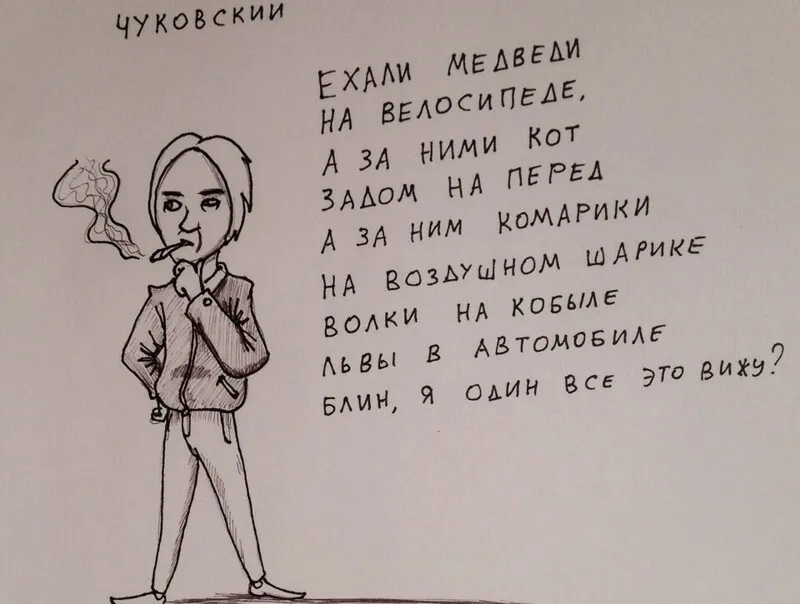 ЧУКОВСКИЙ
ЕХАЛИ МЕДВЕДИ
НА ВЕЛОСИПЕДЕ,
А ЗА НИМИ КОТ
ЗАДОМ НА ПЕРЕД
А ЗА НИМ КОМАРИКИ
НА ВОЗДУШНОМ ШАРИКЕ
ВОЛКИ НА КОБЫЛЕ
ЛЬВЫ В АВТОМОБИЛЕ
БЛИН, Я ОДИН ВСЕ ЭТО ВИЖУ?